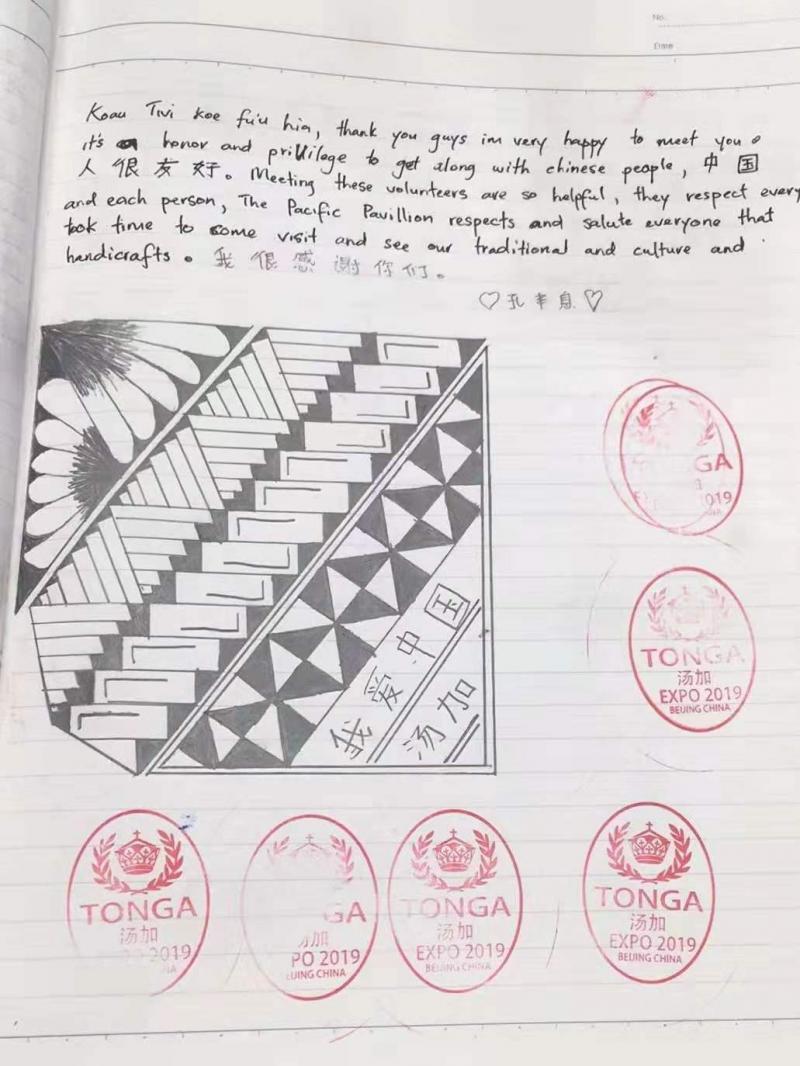 No.
Date
Koau Tivi koe fu'u hia, thank you guys im very happy to meet you.
it's honor and privilage to get along with chinese people, 中国
人很友好。Meeting these volunteers are so helpful, they respect every
and each person, The Pacific Pavillion respects and salute everyone that
took time to come visit and see our traditional and culture and
handicrafts. 我很感谢你们。
♡孔丰息♡
我爱中国
汤加
GA
2019
CHINA
TONGA
汤加
EXPO 2019
BEIJING CHINA
TONGA
汤加
2019
GA
汤加
PO 2019
EIJING CHINA
TONGA
汤加
EXPO 2019
BEIJING CHINA
TONGA
汤加
EXPO 2019
BEIJING CHINA